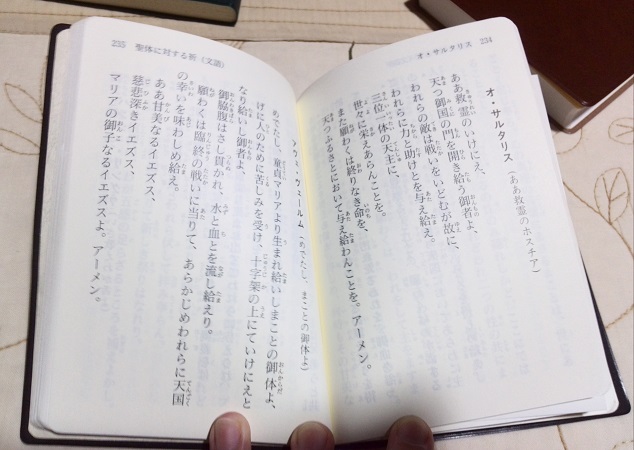 オ・サルタリス 234
オ・サルタリス（ああ救霊のホスチア）
ああ救霊のいけにえ、
天つ御国の門を開き給う御者よ、
われらの敵は戦いをいどむが故に、
われらに力と助けとを与え給え。
三位一体の天主に、
世々に栄えあらんことを。
また願わくは終りなき命を、
天つふるさとにおいて与え給わんことを。アーメン。
235 聖体に対する祈（文語）
アヴェ・ヴェールム（めでたし、まことの御体よ）
めでたし、童貞マリアより生まれ給いしまことの御体よ、
げに人のために苦しみを受け、十字架の上にていけにえと
なり給いし御者よ、
御脇腹はさし貫かれ、水と血とを流し給えり。
願わくは臨終の戦いに当りて、あらかじめわれらに天国
の幸いを味わしめ給え。
ああ甘美なるイエズス、
慈悲深きイエズス、
マリアの御子なるイエズスよ。アーメン。